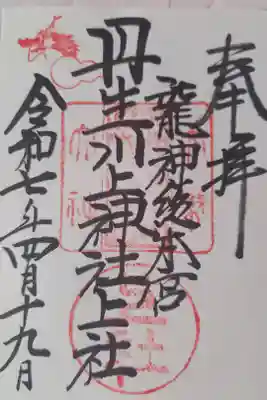 奉拝
龍神総本宮
丹生川上神社上社
令和七年四月十九日